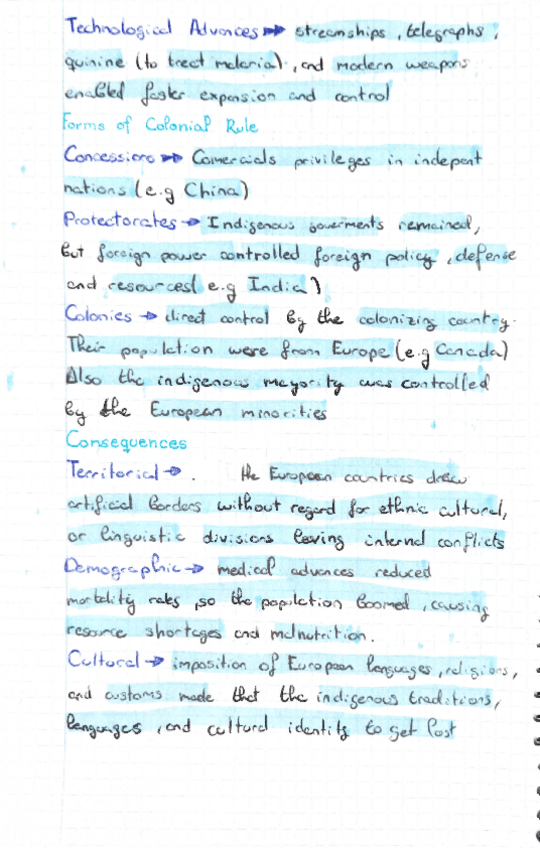 Technological Advances → streamships, telegraphs,
quinine (to treat malaria), and modern weapons
enabled faster expansion and control
Forms of Colonial Rule
Concessions → Comercials privileges in indepent
nations (e.g China)
Protectorates → Indigenous goverments remained,
but foreign power controlled foreign policy, defense
and resources( e.g India)
Colonies → direct control by the colonizing country.
Their population were from Europe (e.g Canada)
Also the indigenous mayority was controlled
by the European minorities
Consequences
Territorial → . the European countries drew
artificial borders without regard for ethnic cultural,
or linguistic divisions leaving internal conflicts
Demographic → medical advances reduced
mortality rates, so the population boomed, causing
resource shortages and malnutrition.
Cultural → imposition of European languages, religions,
and customs made that the indigenous traditions,
languages, and cultural identity to get lost